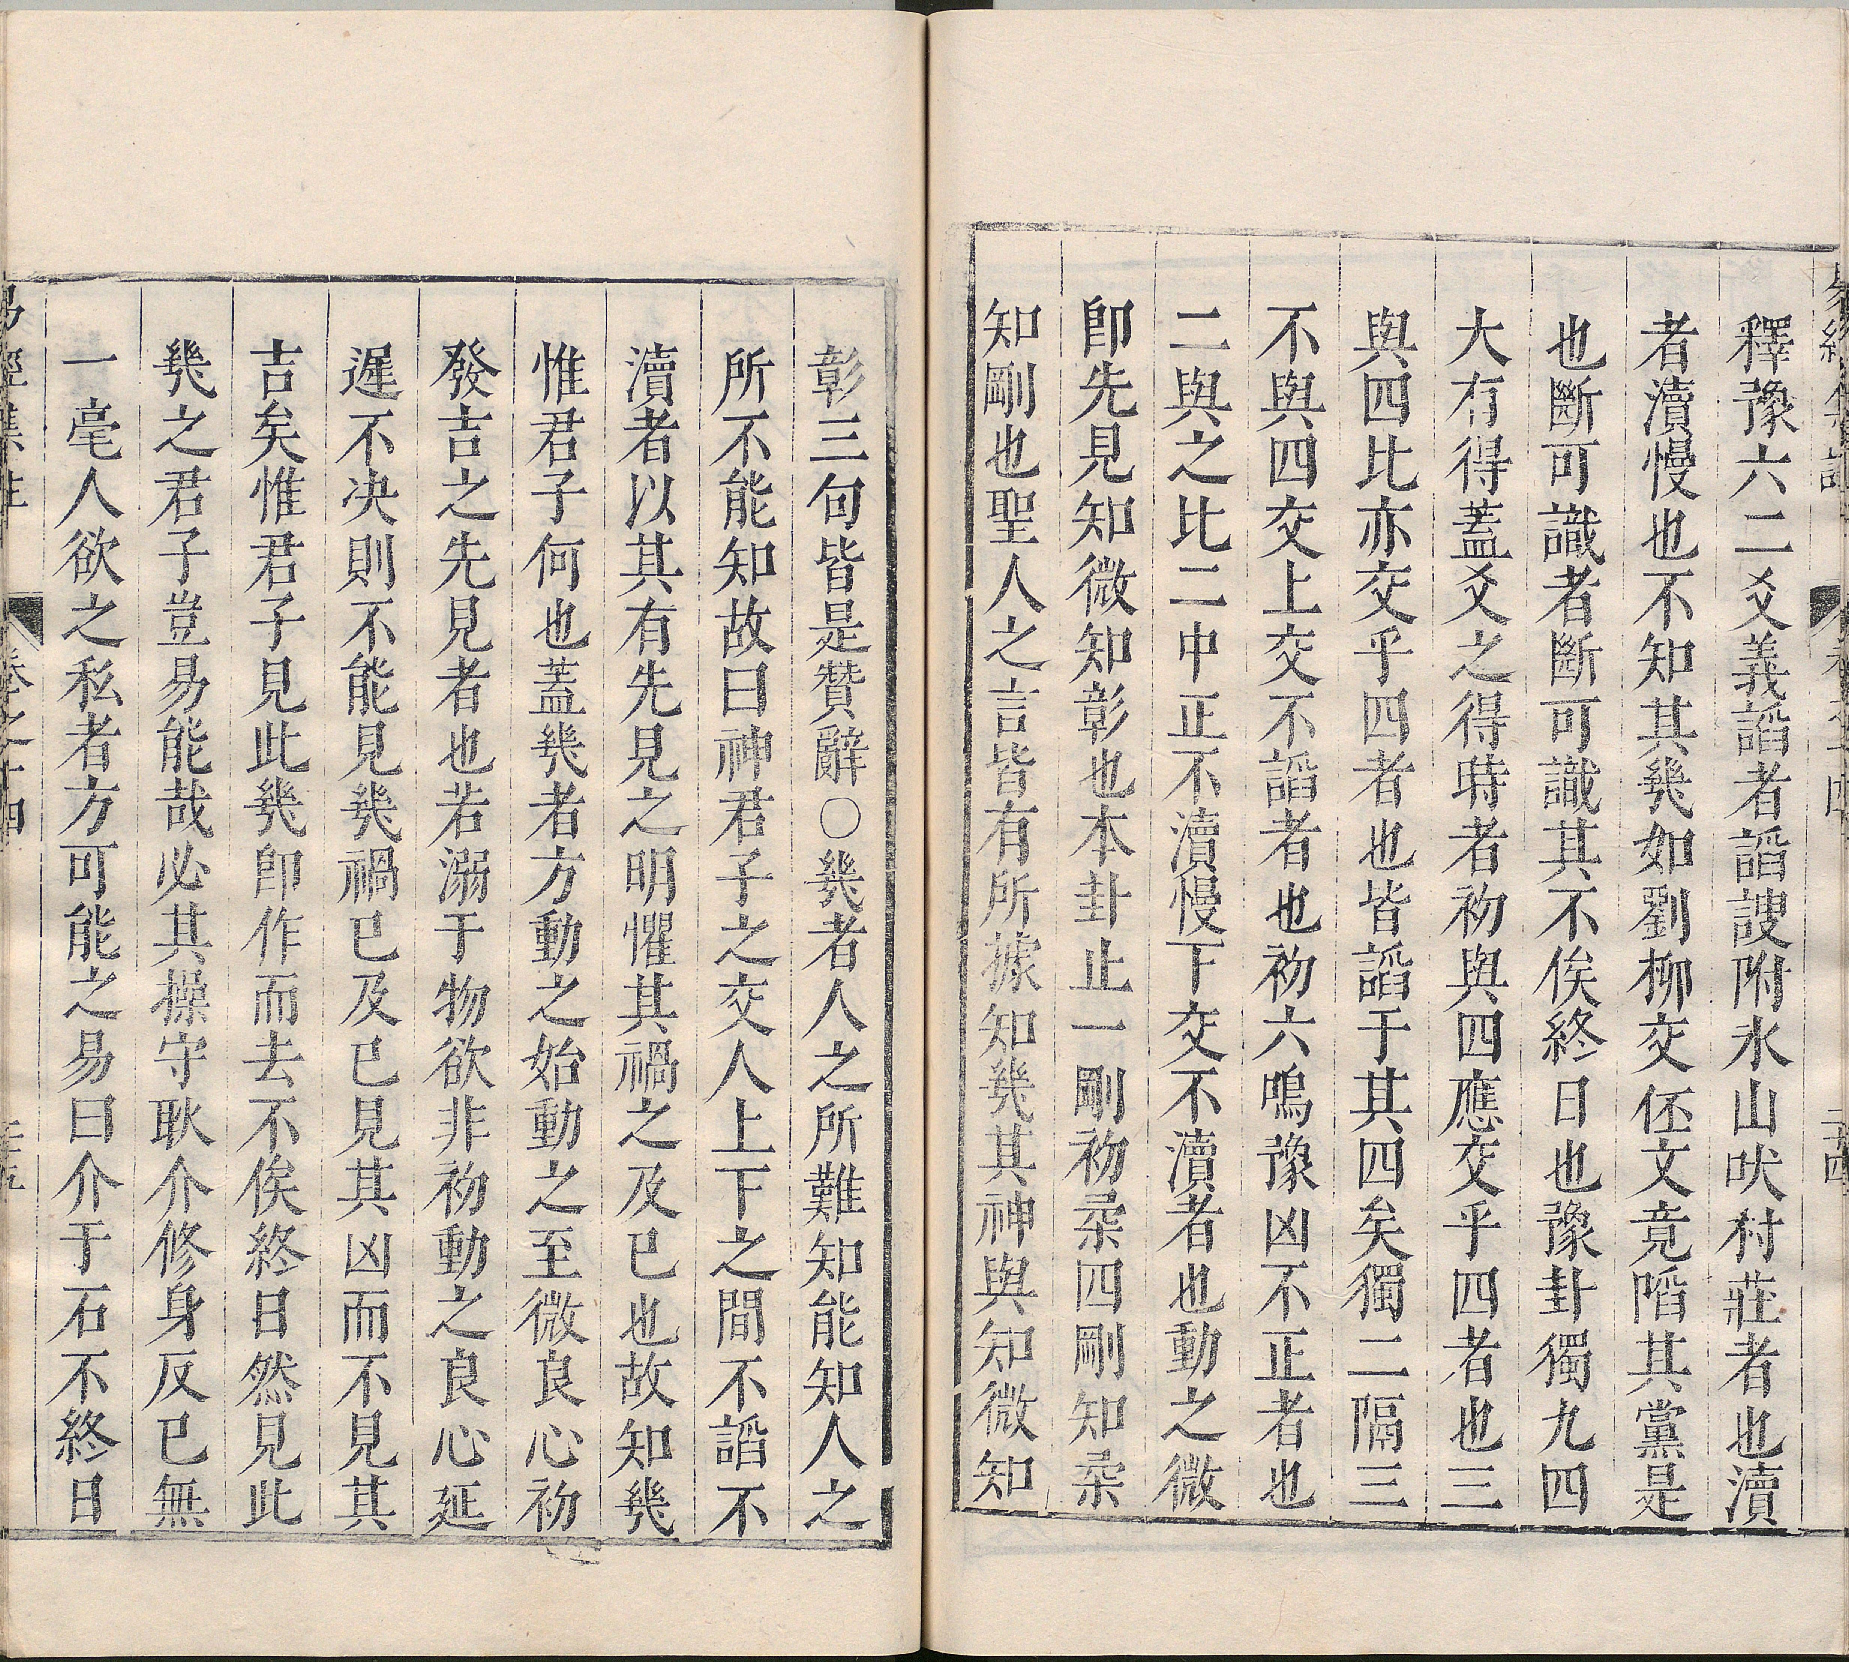 釋豫六二爻義諂者諂諛附氷山吠村莊者也瀆
者瀆慢也不知其㡬如劉柳交伾文竟陷其黨是
也斷可識者斷可識其不俟終日也豫卦獨九四
大有得蓋爻之得時者初與四應交乎四者也三
與四比亦交乎四者也皆諂于其四矣獨二隔三
不與四交上交不諂者也初六鳴豫凶不正者也
二與之比二中正不瀆慢下交不瀆者也動之微
卽先見知微知彰也本卦止一剛初柔四剛知柔
知剛也聖人之言皆有所據知㡬其神與知微知
彰三句皆是贊辭○㡬者人之所難知能知人之
所不能知故曰神君子之交人上下之間不諂不
瀆者以其有先見之明懼其禍之及已也故知㡬
惟君子何也蓋㡬者方動之始動之至微良心初
發吉之先見者也若溺于物欲非初動之良心延
遲不决則不能見㡬禍已及已見其凶而不見其
吉矣惟君子見此㡬卽作而去不俟終日然見此
㡬之君子豈易能哉必其操守耿介修身反已無
一毫人欲之私者方可能之易曰介于石不終日